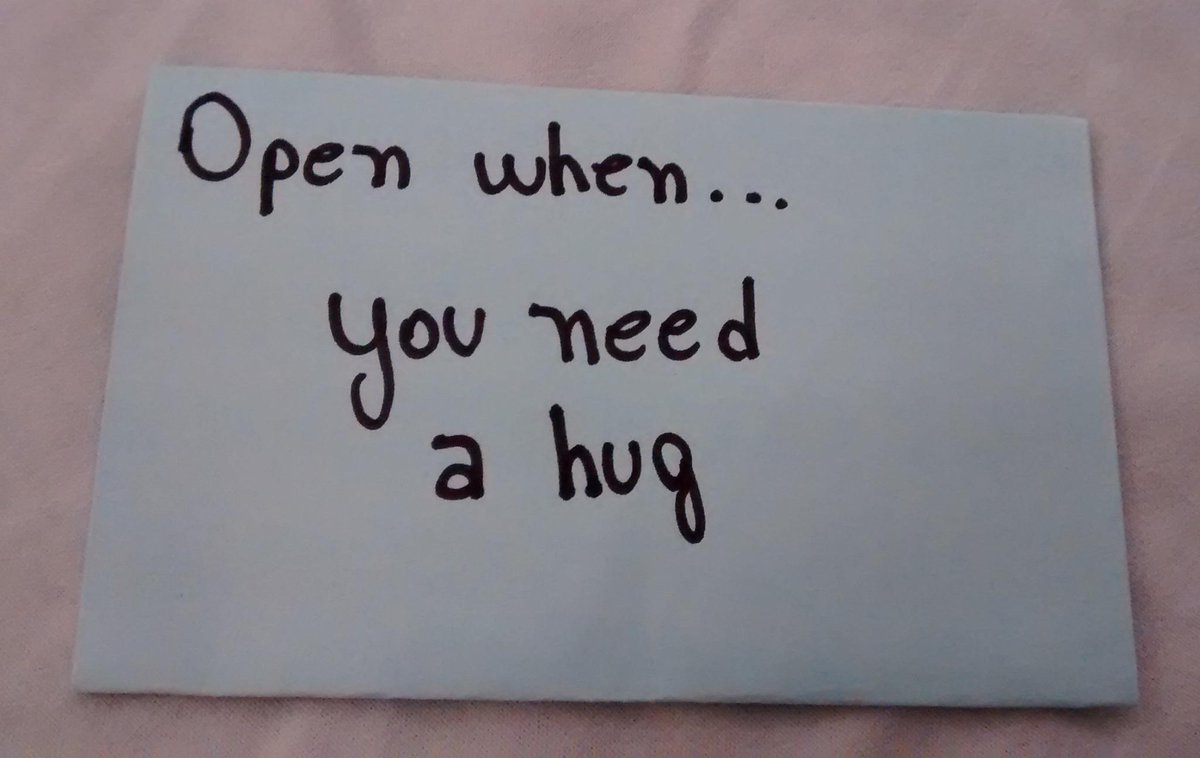 Open when...
you need
a hug